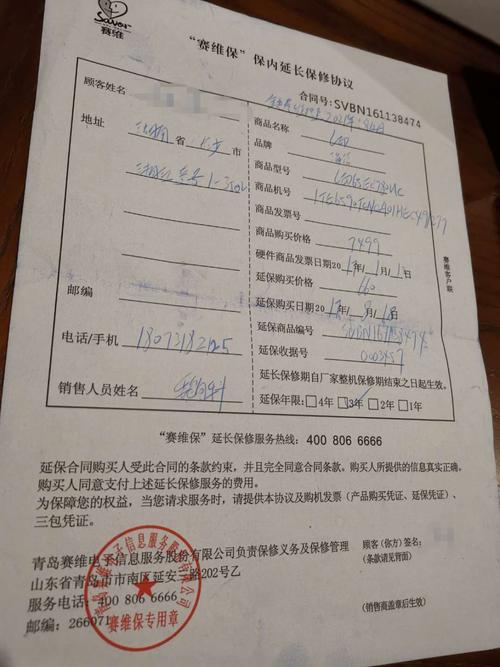 Savor
赛维
“赛维保”保内延长保修协议
合同号:SVBN161138474
顾客姓名
地址
湖南 省 长沙 市
邮编
电话/手机
销售人员姓名
商品名称 LED
品牌 海信
商品型号
商品机号
商品发票号
商品购买价格 7499
硬件商品发票日期201 年 1月 1日
延保购买价格 160
延保购买日期201 年 月 日
延保商品编号
延保收据号 0003457
延长保修期自厂家整机保修期结束之日起生效。
延保年限:□4年 ☑3年 □2年 □1年
赛维客户联
“赛维保”延长保修服务热线: 400 806 6666
延保合同购买人受此合同的条款约束，并且完全同意合同条款。购买人所提供的信息真实正确。
购买人同意支付上述延长保修服务的费用。
为保障您的权益，当您请求服务时，请提供本协议及购机发票（产品购买凭证、延保凭证）、
三包凭证。
青岛赛维电子信息服务股份有限公司负责保修义务及保修管理
山东省青岛市市南区延安三路202号乙
服务电话:400 806 6666
邮编: 266071
顾客（你方）签名:
(条款请见背面)
(销售商盖章后生效)
青岛赛维电子信息服务股份有限公司
赛维保专用章